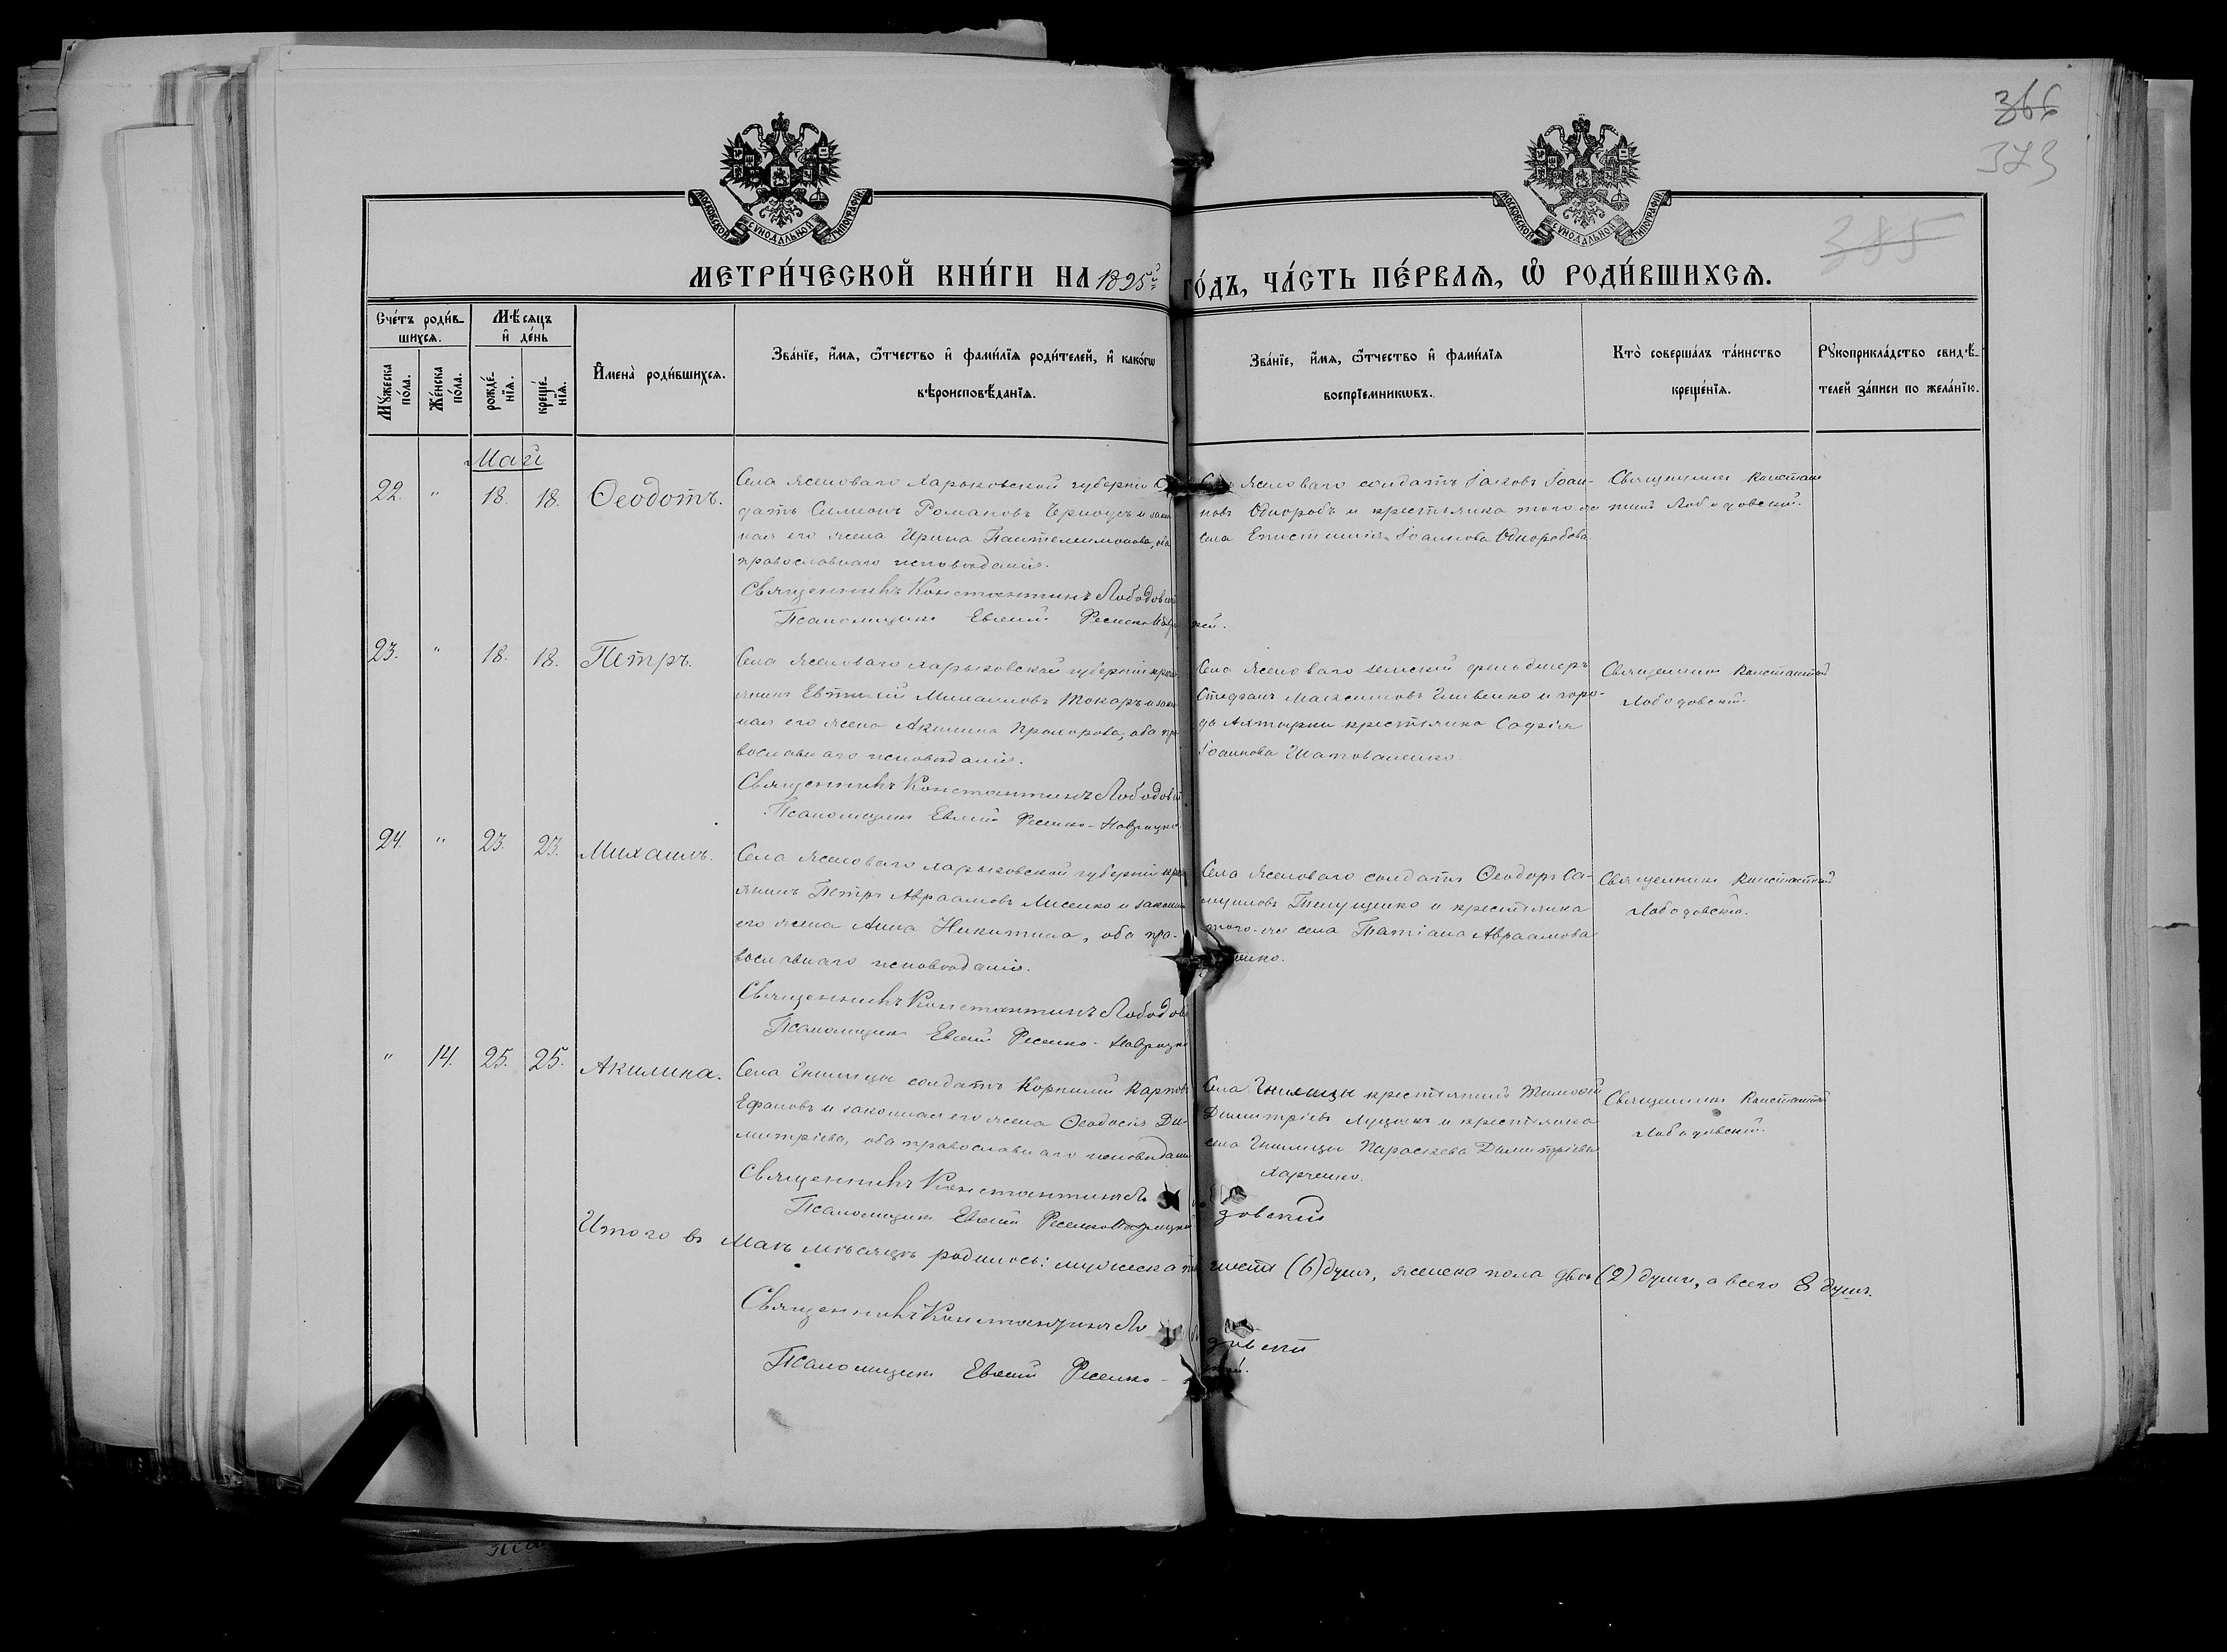 366
373
385
МОСКОВСКОЙ СѴНОДАЛЬНОЙ ТИПОГРАФІИ
МОСКОВСКОЙ СѴНОДАЛЬНОЙ ТИПОГРАФІИ
МЕТРИ́ЧЕСКОЙ КНИ́ГИ НА 1895й го́дъ, ча́сть пе́рвая, ѽ роди́вшихся.
Сче́тъ роди́вшихся.
Му́жеска по́ла.
Же́нска по́ла.
Мѣ́сяцъ и҆ де́нь
рожде́нїя.
креще́нїя.
И҆мена̀ роди́вшихся.
Зва́нїе, и҆́мя, ѻ҆́тчество и҆ фами́лїя роди́телей, и҆ како́гѡ
вѣроисповѣ́данїя.
Зва́нїе, и҆́мя, ѻ҆́тчество и҆ фами́лїя
воспрїе́мникѡвъ.
Кто̀ соверша́лъ та́инство
креще́нїя.
Рꙋкоприкла́дство свидѣ́-
телей за́писи по жела́нїю.
Май
22. " 18. 18. Ѳеодотъ.
Села Ясеноваго Харьковской губерніи
датъ Симеонъ Романовъ и закон
ная его жена Ирина Пантелеимонова, оба
православнаго исповѣданія.
Священникъ Константинъ Лободовскій
Псаломщикъ Евѳимій
Ясеноваго солдатъ Іаковъ Іоан-
новъ Одноробъ и крестьянка того же
села Епистимія Іоаннова Одноробова
Священникъ Констан
тинъ Лободовскій.
23. " 18. 18. Петръ.
Села Ясеноваго Харьковской губерніи крес
янинъ Евтихій Михаиловъ Токарь и закон
ная его жена Акилина Прохорова, оба пра
вославнаго исповѣданія.
Священникъ Константинъ Лободовскій
Псаломщикъ Евѳимій
Села Ясеноваго земскій фельдшеръ
Стефанъ Максимовъ и горо-
да Ахтырки крестьянка Софія
Іоаннова Шаповаленко.
Священникъ Константинъ
Лободовскій.
24. " 23. 23. Михаилъ.
Села Ясеноваго Харьковской губерніи крес
янинъ Петръ Авраамовъ Лисенко и законная
его жена Анна Никитина, оба пра-
вославнаго исповѣданія.
Священникъ Константинъ Лободов
Псаломщикъ Евѳимій
Села Ясеноваго солдатъ Ѳеодоръ Са-
муиловъ и крестьянка
того-же села Татіана Авраамова
енко.
Священникъ Константинъ
Лободовскій.
" 14. 25. 25. Акилина.
Села Гнилицы солдатъ Корнилій Карповъ
Ефановъ и законная его жена Ѳеодосія Ди-
митріева, оба православнаго исповѣданія
Священникъ Константинъ Ло довскій
Псаломщикъ Евѳимій
Села Гнилицы крестьянинъ Тимоѳей
Димитріевъ и крестьянка
села Гнилицы Параскева Димитріева
Харченко.
Священникъ Константинъ
Лободовскій.
Итого въ Маѣ мѣсяцѣ родилось: мужеска пола шесть (6) душъ, женска пола двѣ (2) души, а всего 8 душъ.
Священникъ Константинъ Ло довскій
Псаломщикъ Евѳимій